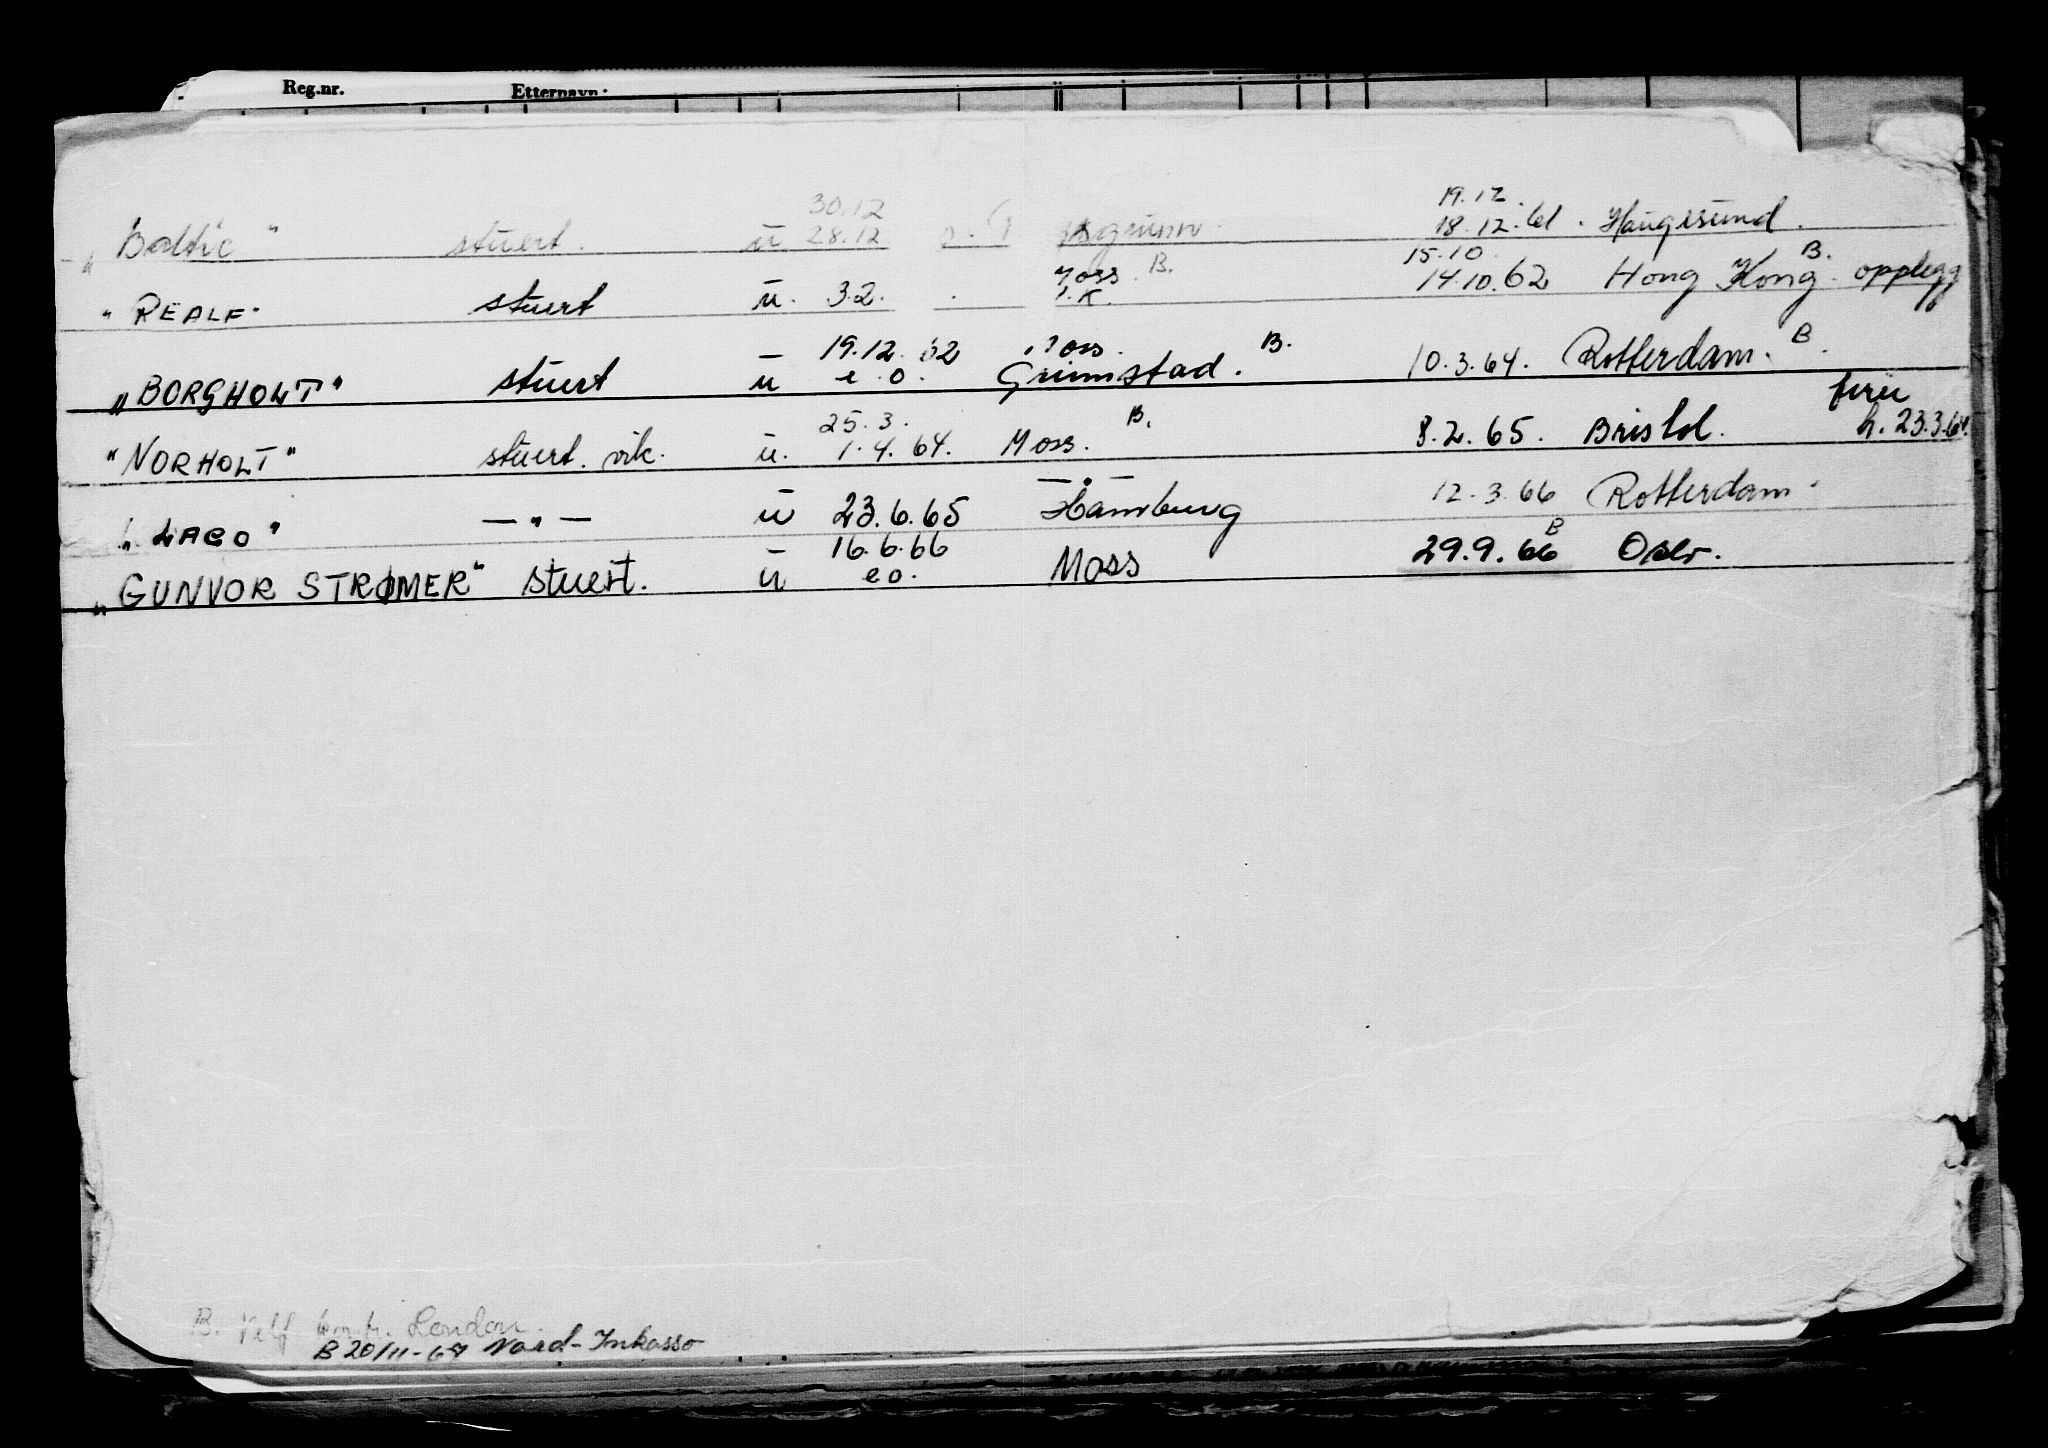 Reg.nr. Etternavn:
30.12 19.12.
"Baltic" stuert. u 28.12 18.12.61. Haugesund.
15.10.
"REALF" stuert u. 3.2. Moss B. 14.10.62 Hong Kong B. opplegg
19.12.62 Moss.
"BORGHOLT" stuert u e.o. Grimstad. B. 10.3.64. Rotterdam. B.
25.3. ferie
"NORHOLT" stuert. vik. u. 1.4.64. Moss. B. 8.2.65. Bristol. h. 23.3.64.
"LAGO" — " — u 23.6.65 Hamburg 12.3.66 Rotterdam.
16.6.66
"GUNVOR STRØMER" stuert. u e.o. Moss 29.9.66 B Oslo.
B. Velf. London.
B 20/11-67 Nord-Inkasso